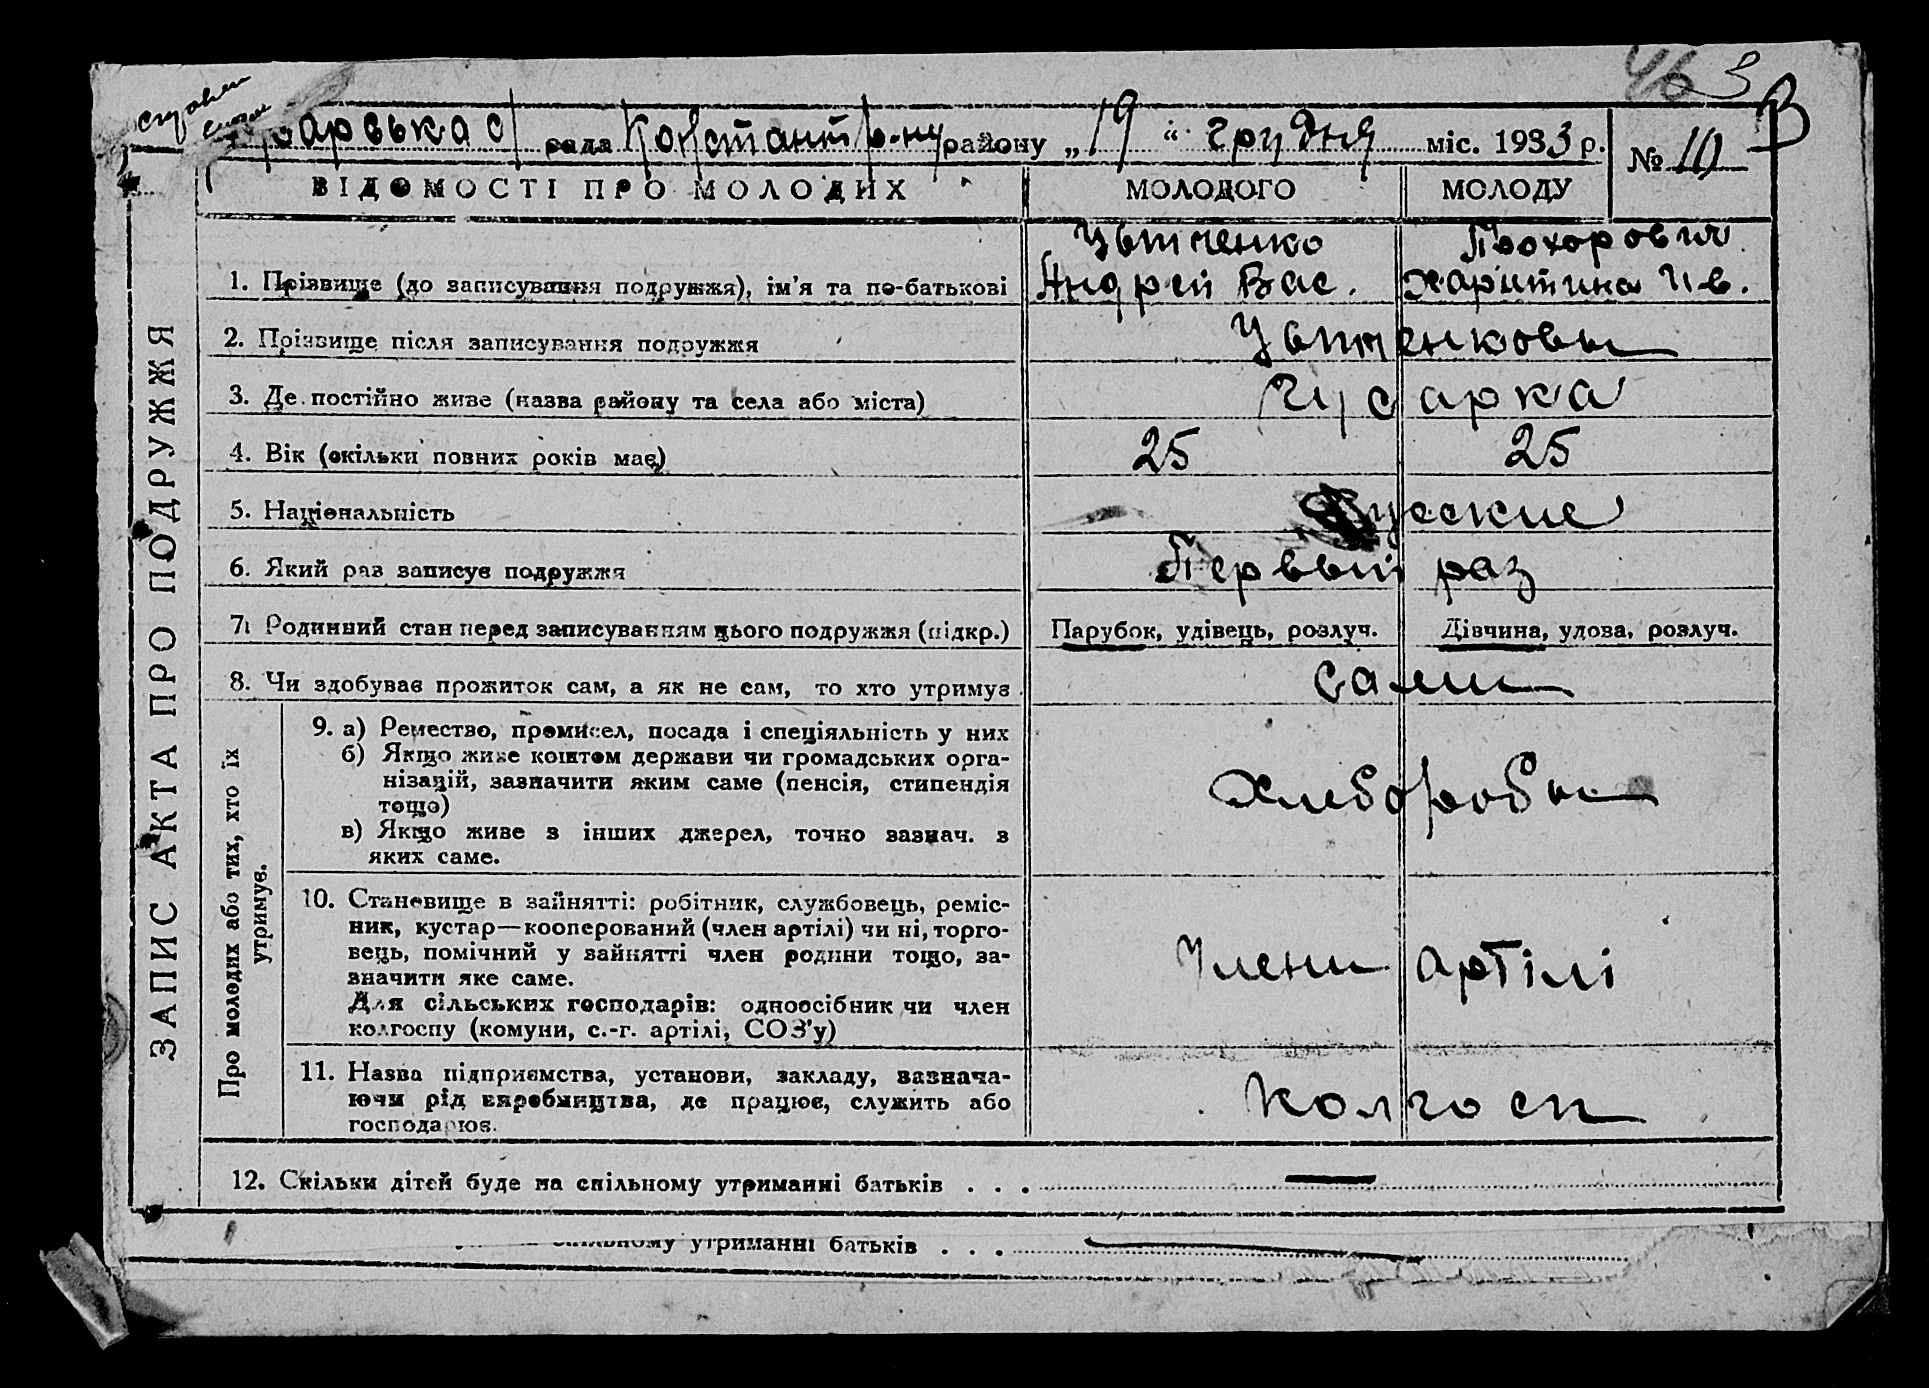 46 3
В
арська с/ рада Констант р-ну району „ 19 “ грудня міс. 1933 р. № 10
ВІДОМОСТІ ПРО МОЛОДИХ МОЛОДОГО МОЛОДУ
ЗАПИС АКТА ПРО ПОДРУЖЖЯ
Прохорович
1. Прізвище (до записування подружжя), ім'я та по-батькові Андрей Вас. Харитина Ив.
2. Прізвище після записування подружжя
3. Де постійно живе (назва району та села або міста) Гусарка
4. Вік (скільки повних років має) 25 25
5. Національність Русские
6. Який раз записує подружжя Первый раз
7. Родинний стан перед записуванням цього подружжя (підкр.) Парубок, удівець, розлуч. Дівчина, удова, розлуч.
8. Чи здобуває прожиток сам, а як не сам, то хто утримує сами
Про молодих або тих, хто їх
утримує.
9. а) Ремество, промисел, посада і спеціяльність у них
б) Якщо живе коштом держави чи громадських орга-
нізацій, зазначити яким саме (пенсія, стипендія
тощо)
в) Якщо живе з інших джерел, точно зазнач. з
яких саме.
Хлеборобы
10. Становище в зайнятті: робітник, службовець, реміс-
ник, кустар—кооперований (член артілі) чи ні, торго-
вець, помічний у зайнятті член родини тощо, за-
значити яке саме.
Для сільських господарів: одноосібник чи член
колгоспу (комуни, с.-г. артілі, СОЗ'у)
Члени артілі
11. Назва підприємства, установи, закладу, зазнача-
ючи рід виробництва, де працює, служить або
господарює.
Колгосп
12. Скільки дітей буде на спільному утриманні батьків . . . —
спільному утриманні батьків . . .